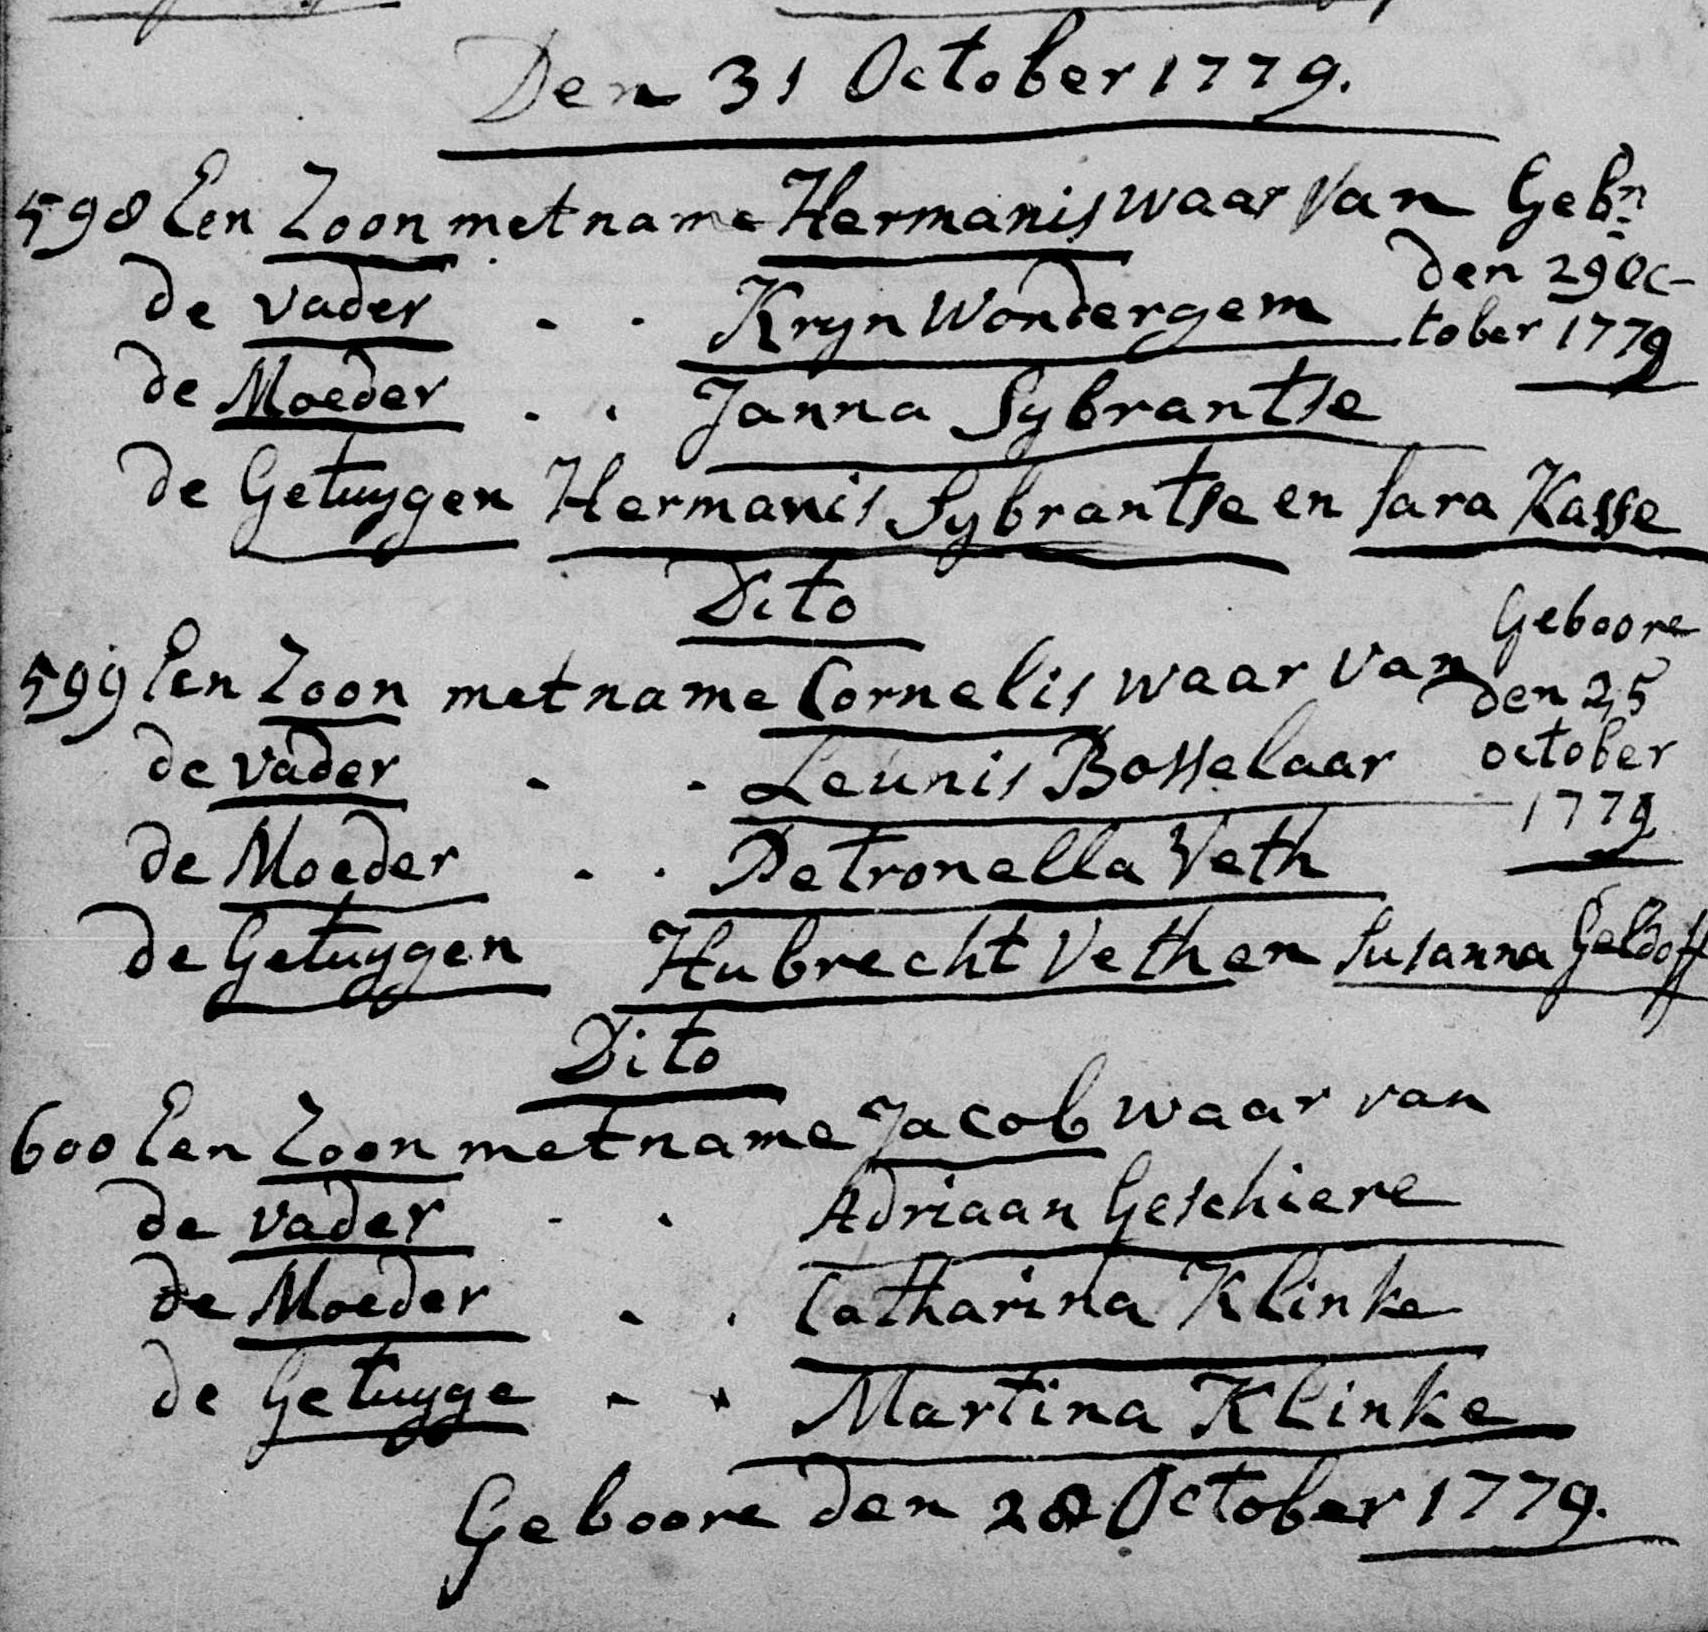 Den 31 October 1779.
598 Een Zoon met name Hermanis waar van Gebn
den 29 Oc-
de vader . . Kryn Wondergem
tober 1779
de Moeder . . Janna Sybrantse
de Getuygen Hermanis Sybrantse en Sara Kasse
Dito
Geboore
599 Een Zoon met name Cornelis waar van
den 25
de vader . . Leunis Bosselaar
october
1779
de Moeder . . Petronella Veth
de Getuygen Hubrecht Veth en Susanna Geldoff
Dito
600 Een Zoon met name Jacob waar van
de vader . . Adriaan Geschiere
de Moeder . . Catharina Klinke
de Getuyge . . Martina Klinke
Geboore den 28 October 1779.